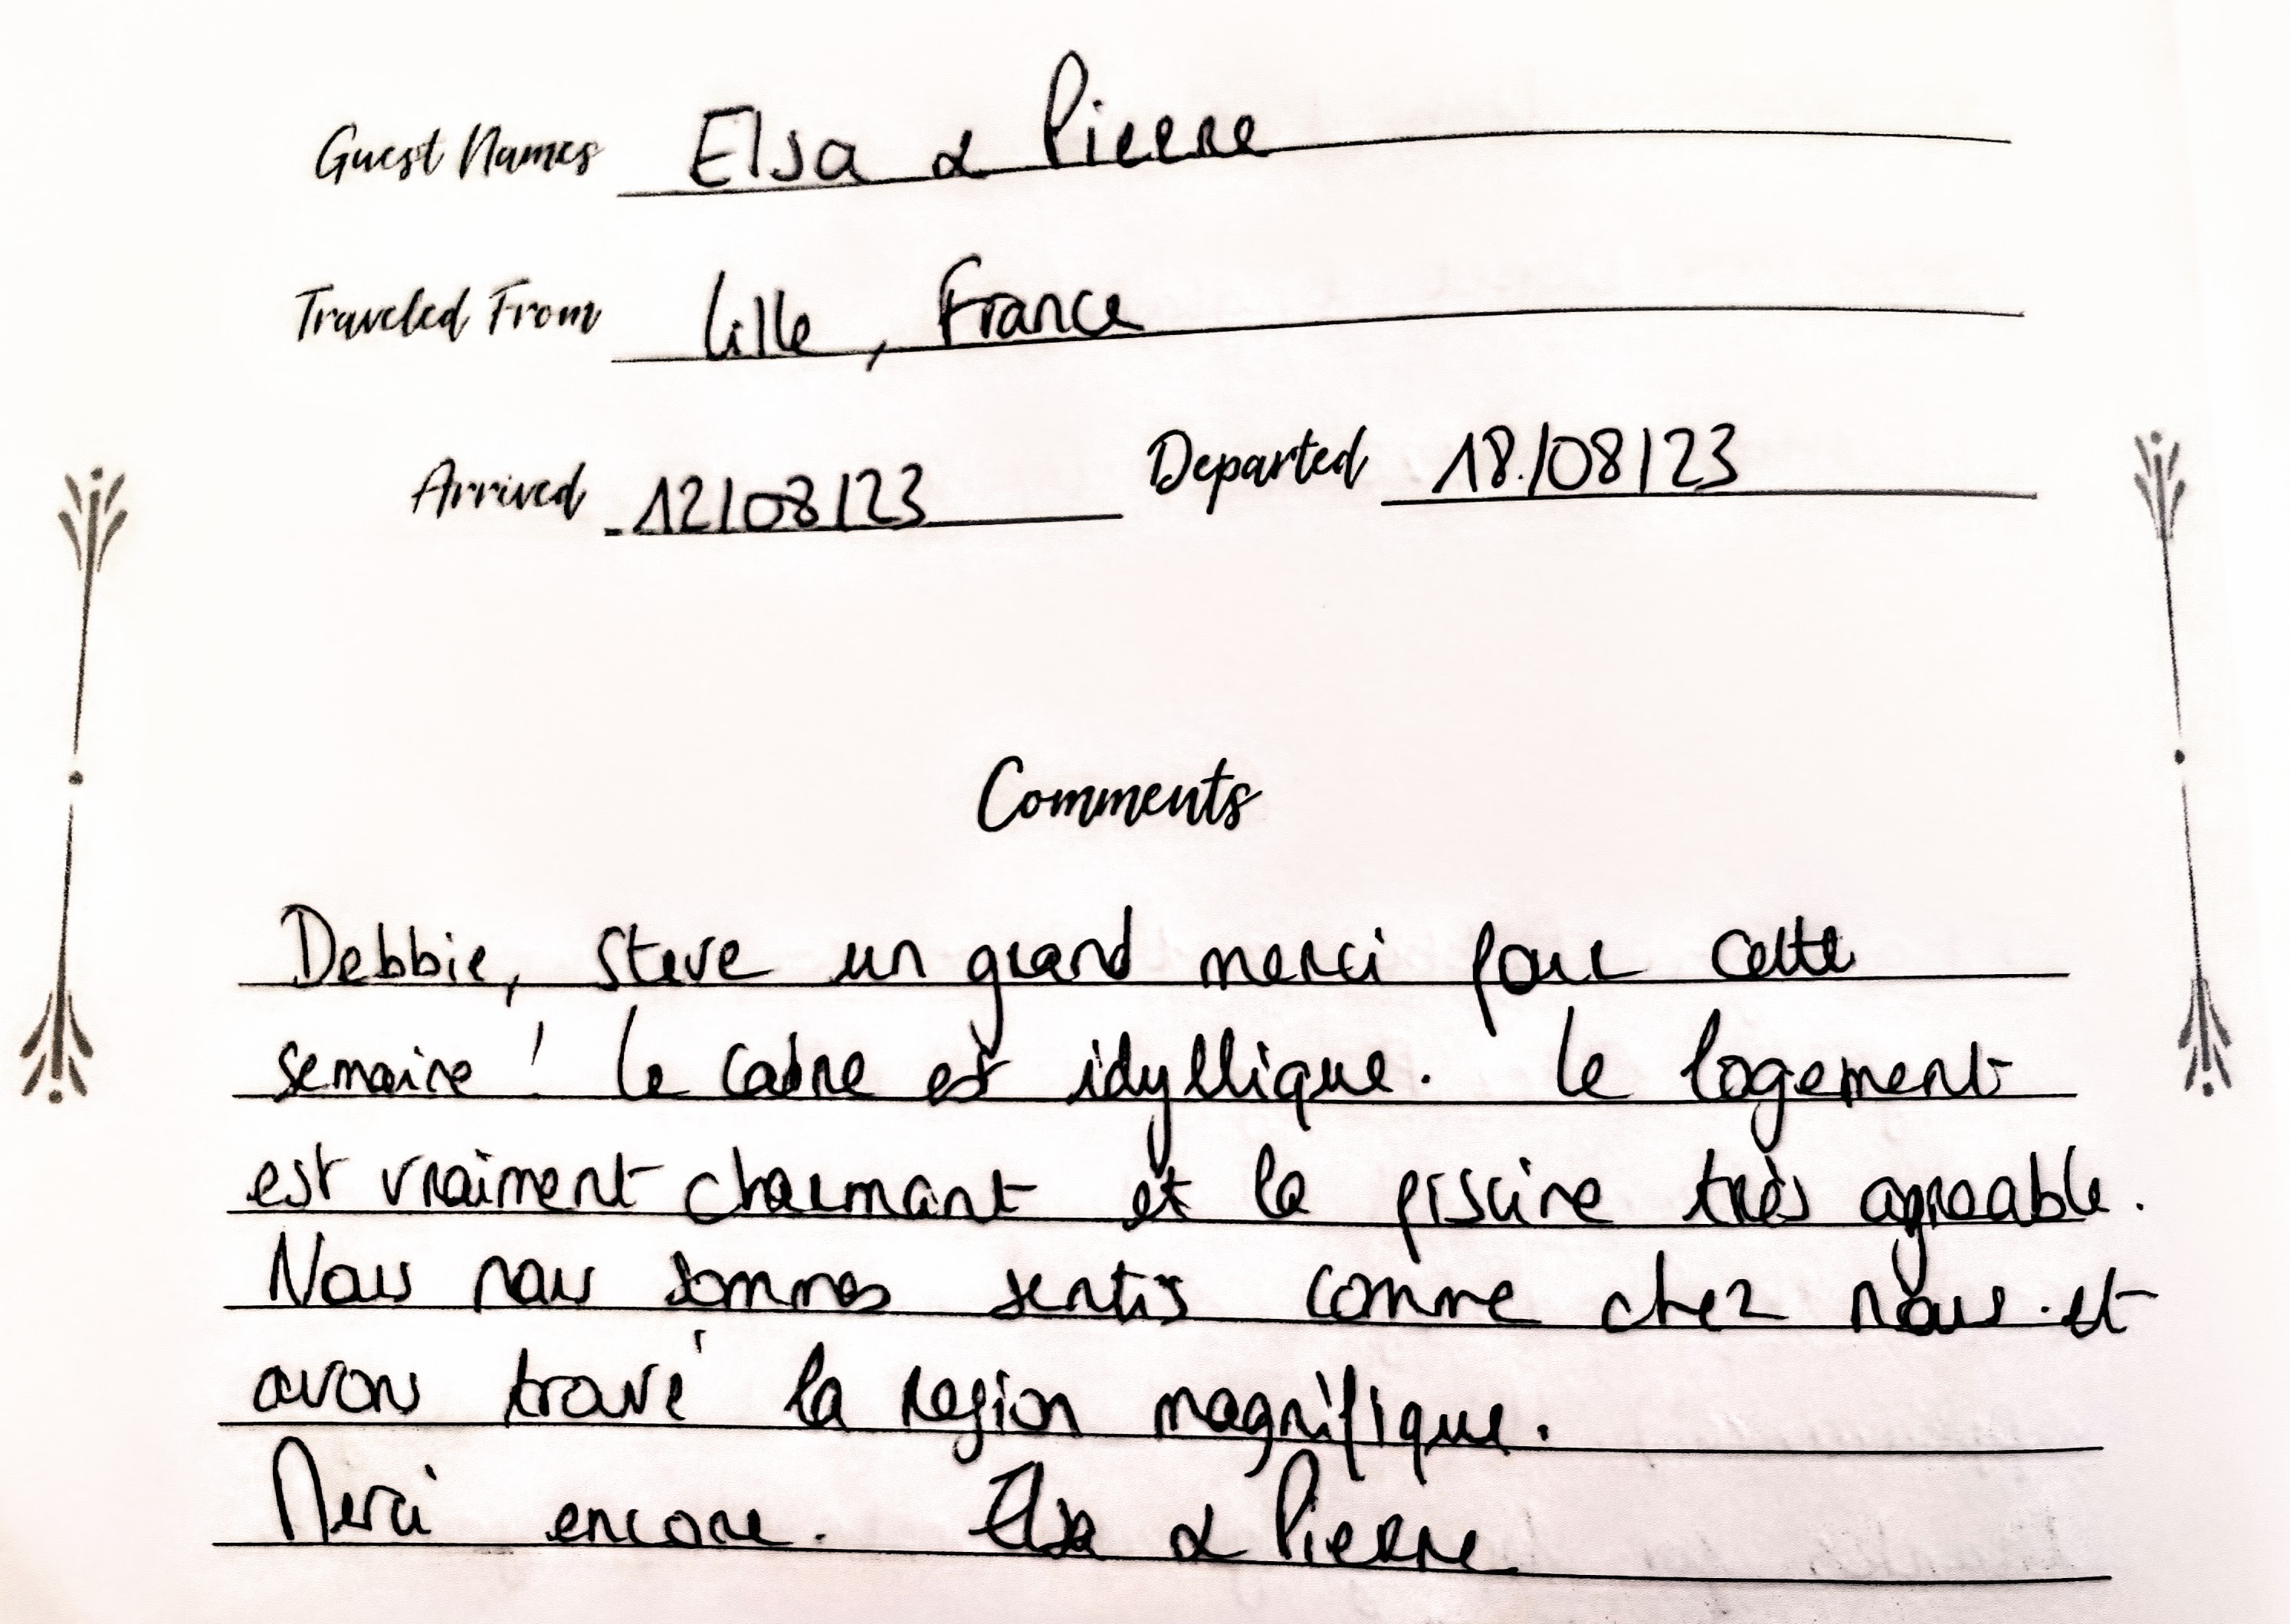 Guest Names Elsa & Pierre
Traveled From Lille, France
Arrived 12/08/23 Departed 18/08/23
Comments
Debbie, Steve un grand merci pour cette
semaine ! Le cadre est idyllique. Le logement
est vraiment charmant et la piscine très agréable.
Nous nous sommes sentis comme chez nous et
avons trouvé la region magnifique.
Merci encore. Elsa & Pierre